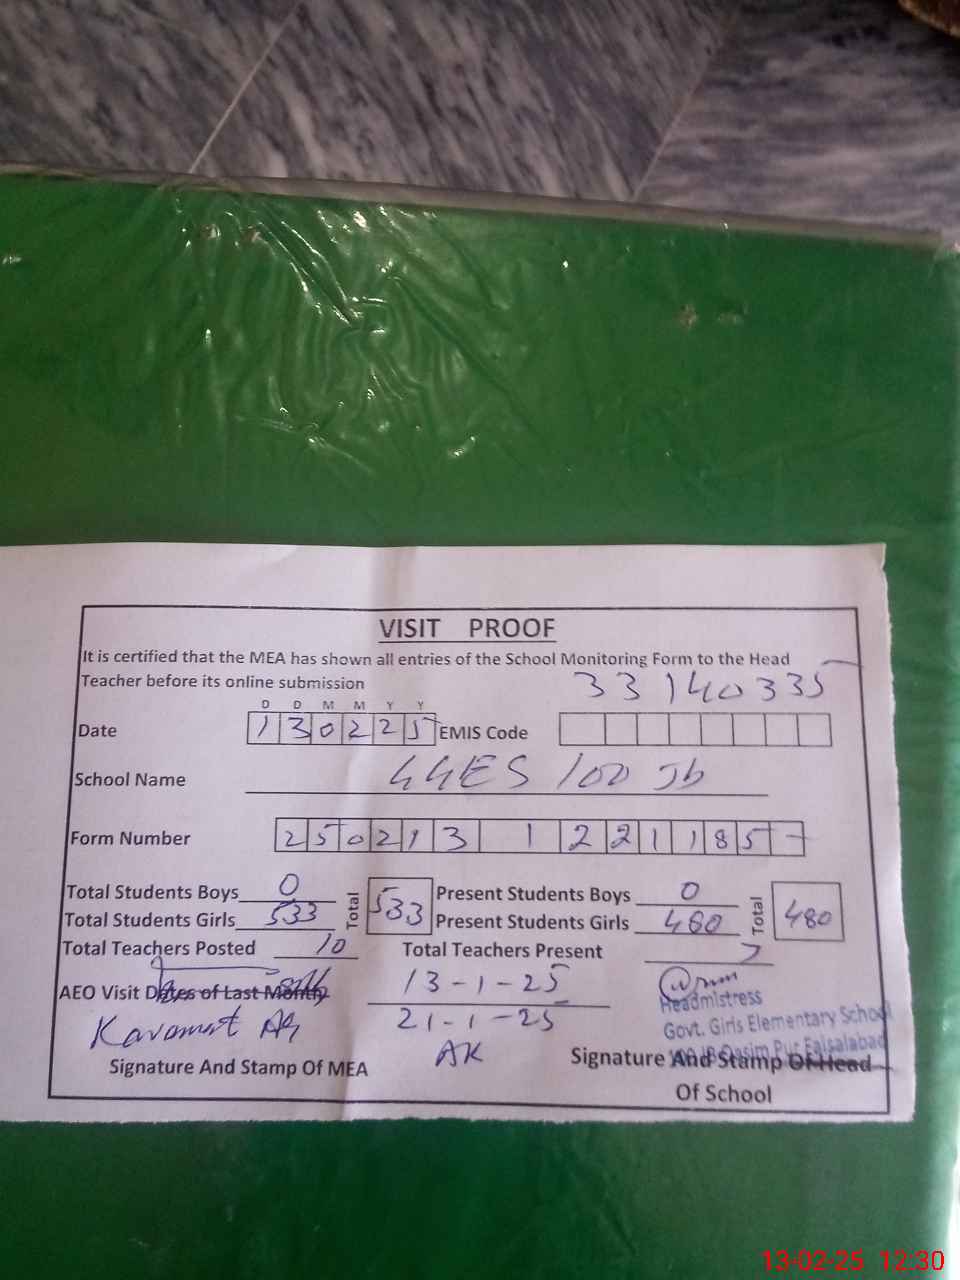 VISIT PROOF
It is certified that the MEA has shown all entries of the School Monitoring Form to the Head
Teacher before its online submission
33140335
D D M M Y Y
Date 130225 EMIS Code
School Name GGES 100 Jb
Form Number 250213 1 221185
Total Students Boys 0 Total 533 Present Students Boys 0 Total 480
Total Students Girls 533 Present Students Girls 480
Total Teachers Posted 10 Total Teachers Present 7
AEO Visit Dates of Last Month 13-1-25
21-1-25
Karamat
AK
Headmistress
Govt. Girls Elementary School
100 JB Qasim Pur Faisalabad
Signature And Stamp Of MEA Signature And Stamp Of Head
Of School
13-02-25 12:30